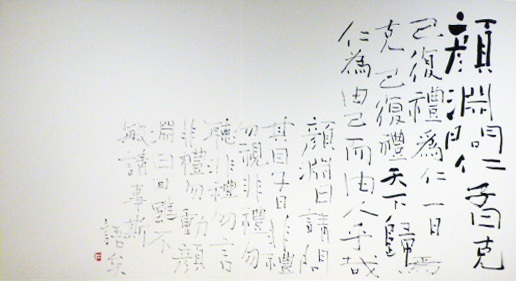 顏淵問仁子曰克
己復禮爲仁一日焉
克己復禮天下歸
仁為由己而由人乎哉
顏淵曰請問
其目子曰非禮
勿視非禮勿
聽非禮勿言
非禮勿動顏
淵曰回雖不
敏請事斯
語矣